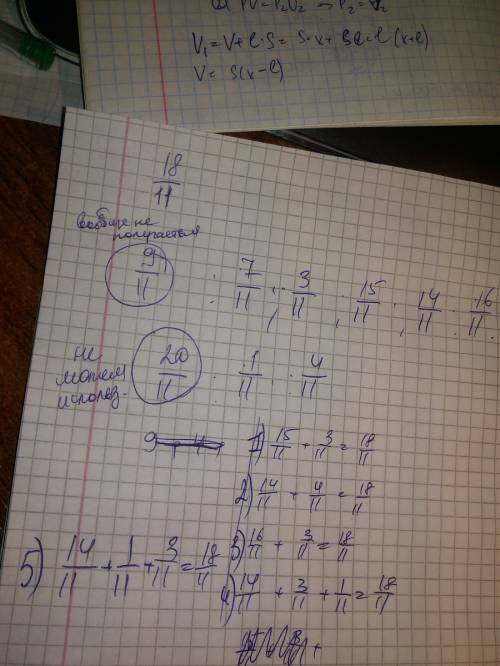 PV = P₂V₂ ⇒ P₂ =
V₁ = V + l·S = S·x +
V = S(x-l)
18/11
вообще не
получается
9/11 ; 7/11 ; 3/11 ; 15/11 ; 14/11 ; 16/11
не
можем
использ.
20/11 ; 1/11 ; 4/11
9
1) 15/11 + 3/11 = 18/11
2) 14/11 + 4/11 = 18/11
3) 16/11 + 3/11 = 18/11
4) 14/11 + 3/11 + 1/11 = 18/11
5) 14/11 + 1/11 + 3/11 = 18/11